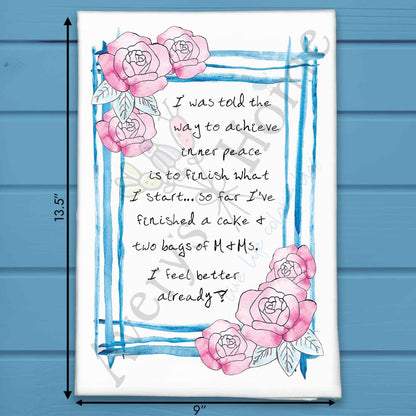 I was told the
way to achieve
inner peace
is to finish what
I start... so far I've
finished a cake &
two bags of M&Ms.
I feel better
already!
13.5"
9"
Avery's Home